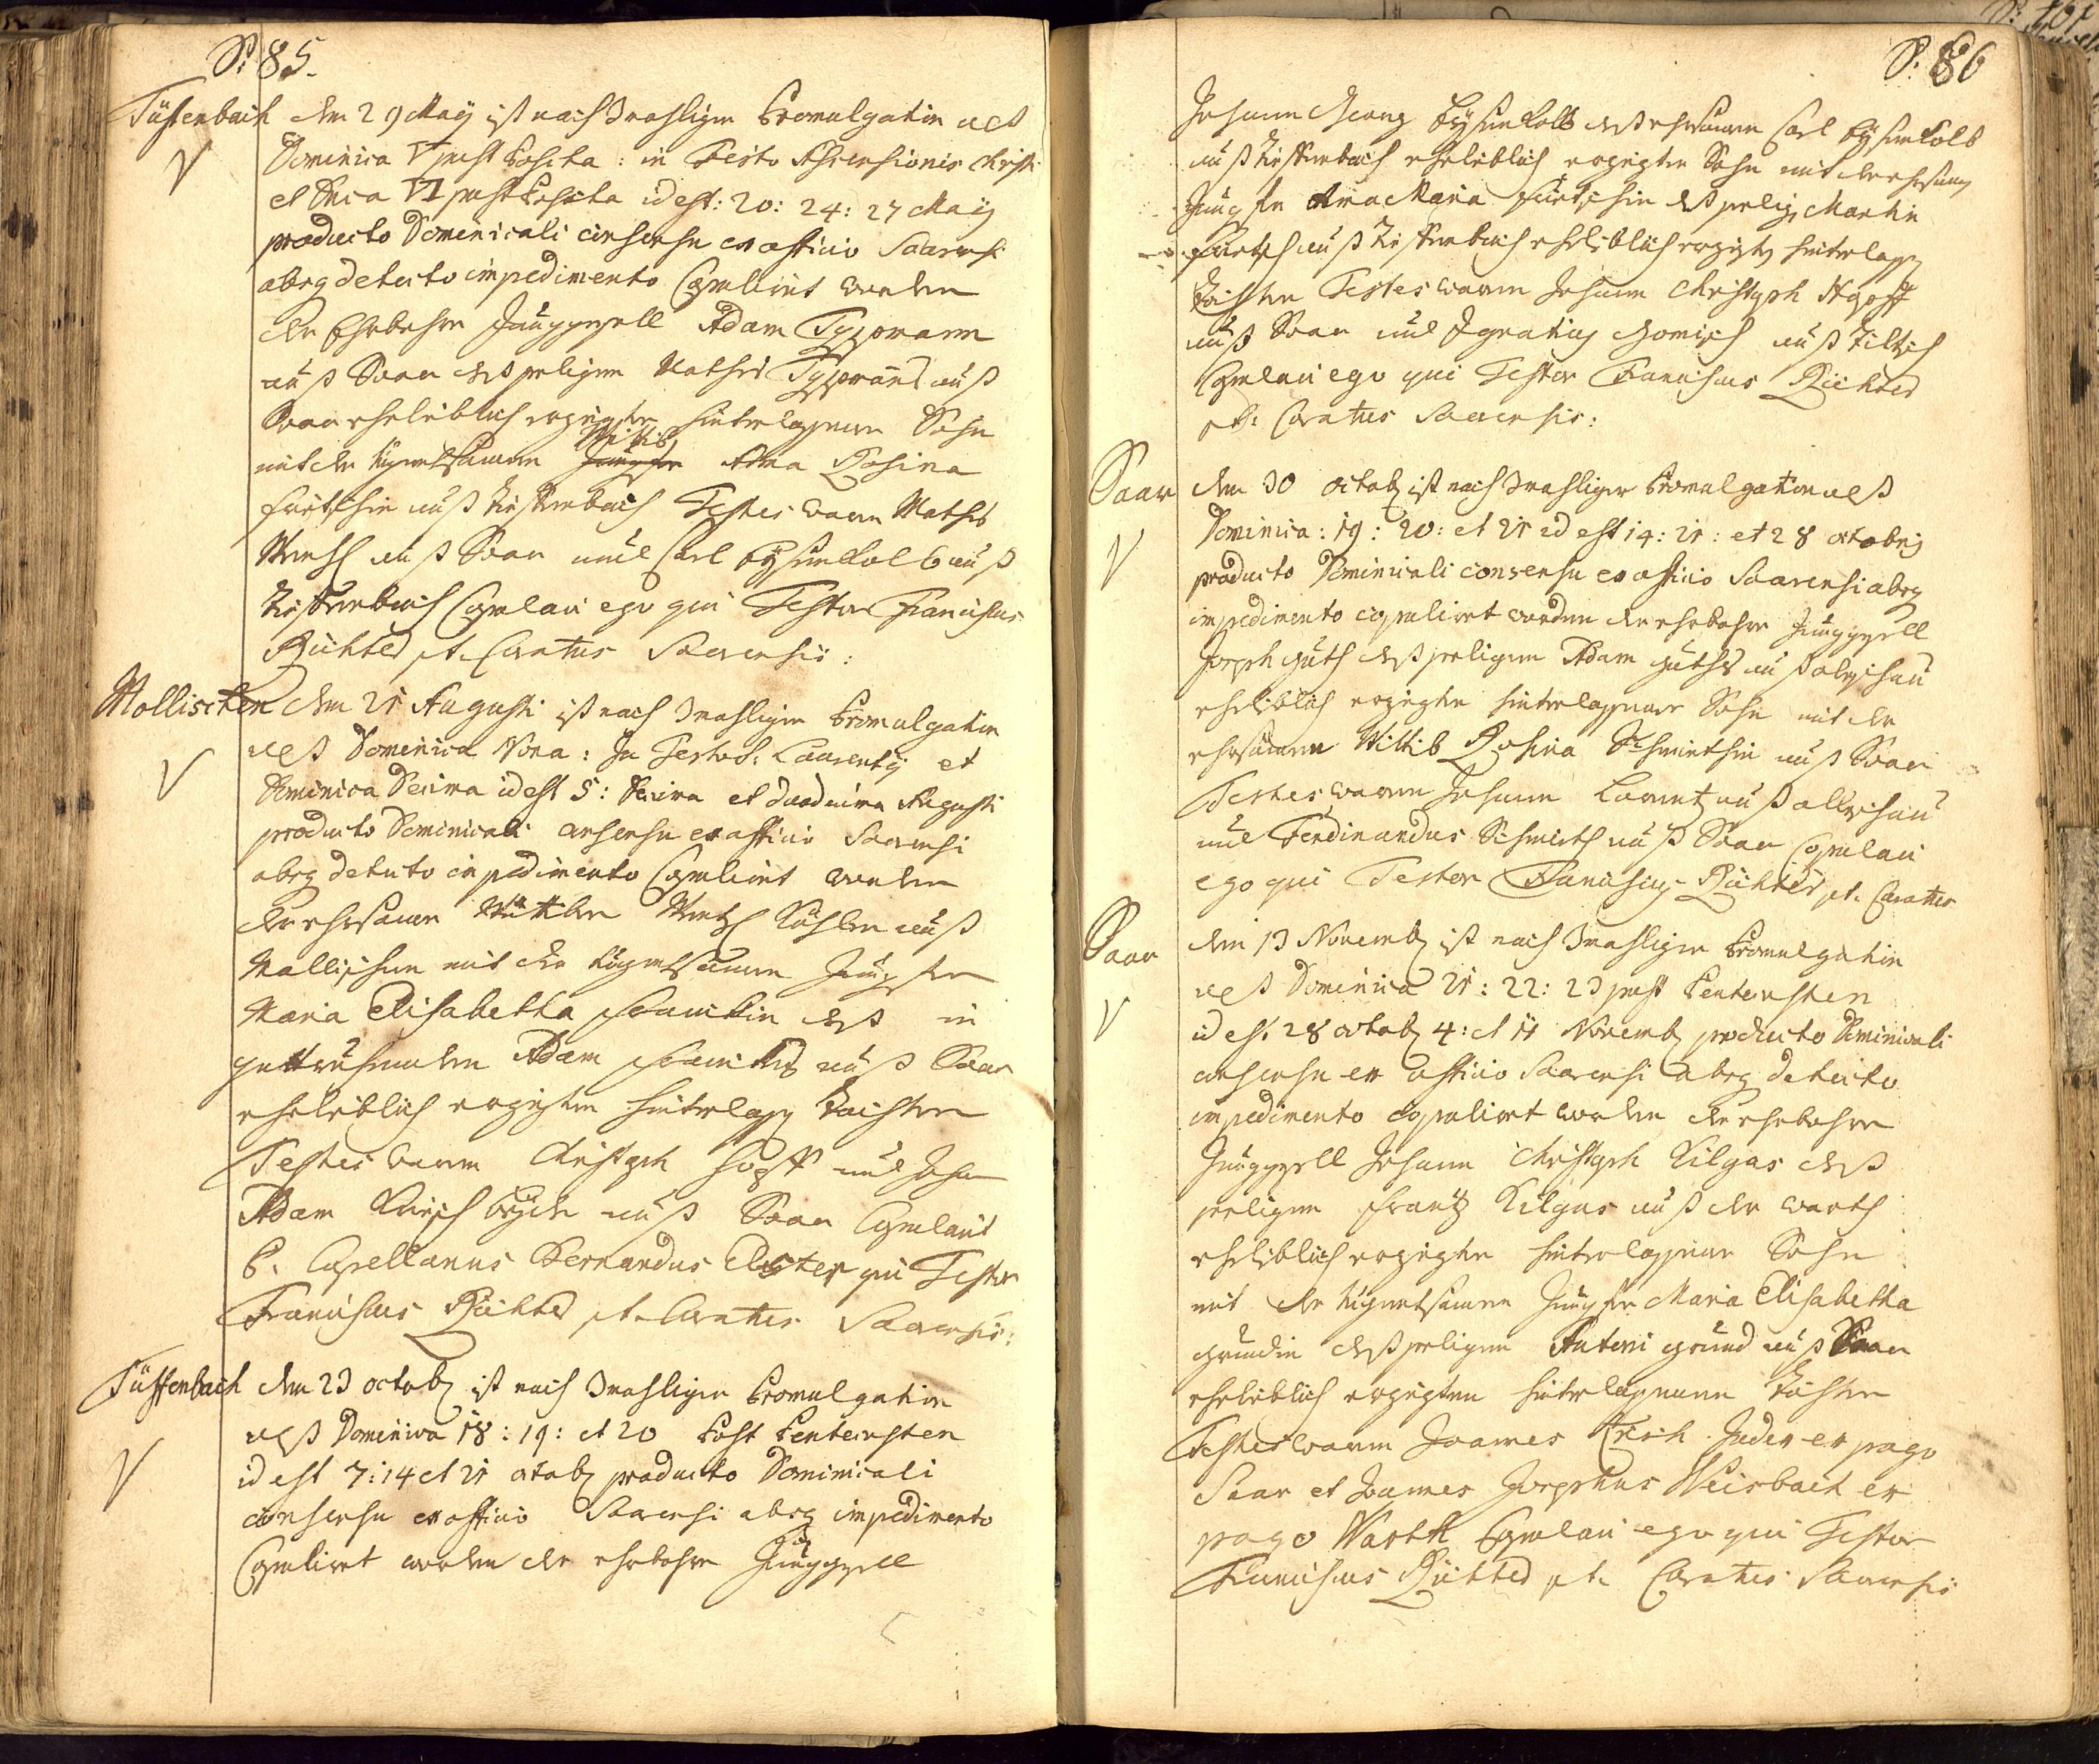 P: 85.
Tüffenbach den 29 Maÿ ist nach 3 mahliger Promulgation als
Dominica V post Pascha: in Festo Ascensionis Christi
et Dnica VI post Pascha id est: 20: 24: 27 Maÿ
producto Dominicali consensu ex officio Saarensi
absq detecto impedimento Copuliret worden
der Ehrbahre Junggesell Adam
auß Saar deß seeligen Mathes auß
Saar ehrleiblich erzeigter hinterlassener Sohn
mit der tugentsamen Wittib Anna Rosina
auß Tieffenbach Testes waren Mathes
auß Saar und Carl Eÿsenkolb auß
Tieffenbach Copulavi ego qui Testor Franciscus
Richter p.t. Curatus Saarensis:
Mollischen den 21 Augusti ist nach 3 mahliger Promulgation
alß Dominica Nona: In Festo S. Laurentÿ et
Dominica Decima id est 5: Decima et duodecima Augusti
producto Dominicali consensu ex officio Saarensi
absq detecto impedimento Copuliret worden
der ehrsame Wüttber auß
Mollischen mit der tugentsamen Jungfer
Maria Elisabetha deß in
gott ruhenden Adam auß Saar
ehrleiblich erzeigten hinterlass Tochter
Testes waren Christoph Hopff und Johan
Adam auß Saar Copulavit
P. Capellanus Bernardus qui Testor
Franciscus Richter p.t. Curatus Saarensis:
Tüffenbach den 23 octob ist nach 3 mahliger Promulgation
alß Dominica 18: 19: et 20 Post Pentecosten
id est 7: 14 et 21 octob producto Dominicali
consensu ex officio Saarensi absq impedimento
Copuliret worden der ehrbahre Junggesell
P: 86
Johann Georg Eÿsenkolb deß ehrsamen Carl Eÿsenkolb
auß Tieffenbach ehrleiblich erzeigter Sohn mit der ehrsam
Jungfer Anna Maria deß seelig Martin
auß Tieffenbach ehrleiblich erzeigte hinterlass
Tochter Testes waren Johann Christoph Hopff
auß Saar und Ignatius auß
Copulavi ego qui Testor Franciscus Richter
p.t. Curatus Saarensis:
Saar den 30 octob ist nach 3 mahliger Promulgation alß
Dominica: 19: 20: et 21 id est 14: 21: et 28 octobris
producto Dominicali consensu ex officio Saarensi absq
impedimento copuliret worden der ehrbahre Junggesell
Joseph Guth deß seeligen Adam Guths auß
ehrleiblich erzeigter hinterlassener Sohn mit der
ehrsamen Wittib Rosina auß Saar
Testes waren Johann Lorentz auß
und Ferdinandus Schmidt auß Saar Copulavi
ego qui Testor Franciscus Richter p.t. Curatus
Saar den 13 Novemb ist nach 3 mahliger Promulgation
alß Dominica 21: 22: 23 post Pentecosten
id est 28 octob 4: et 11 Novemb producto Dominicali
consensu ex officio Saarensi absq detecto
impedimento copuliret worden der ehrbahre
Junggesell Johann Christoph Kilgus deß
seeligen Frantz Kilgus auß der warth
ehrleiblich erzeigter hinterlassener Sohn
mit der tugentsamen Jungfer Maria Elisabetha
Grundin deß seeligen Antoni Grund auß Saar
ehrleiblich erzeigten hinterlassenen Tochter
Testes waren Joannes Judex ex pago
Saar et Joannes Josephus Weisbach ex
pago Warth Copulavi ego qui Testor
Franciscus Richter p.t. Curatus Saarensis